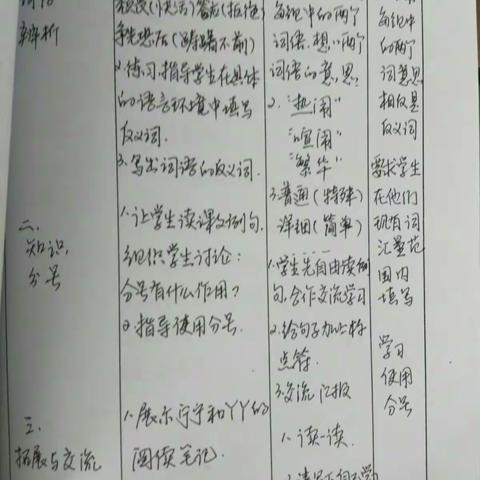 词语
辨析
二、
知识,
分号
三、
拓展与交流
争先恐后（踌躇不前）
2.练习,指导学生在具体
的语言环境中填写
反义词.
3.写出词语的反义词.
1.让学生读课文例句,
组织学生讨论：
分号有什么作用？
2.指导使用分号.
1.展示宁宁和丫丫的
阅读笔记.
每组中的两个
词语,想一两个
词语的意思?
2.“热闹”
“喧闹”
“繁华”
3.普通（特殊）
详细（简单）
1.学生先自由读例
句,合作交流学习
2.给句子加上标
点符.
3.交流汇报
1.读一读.
每组中
的两个
词意思
相反是
反义词
要求学生
在他们
现有词
汇量范
围内
填写
学习
使用
分号